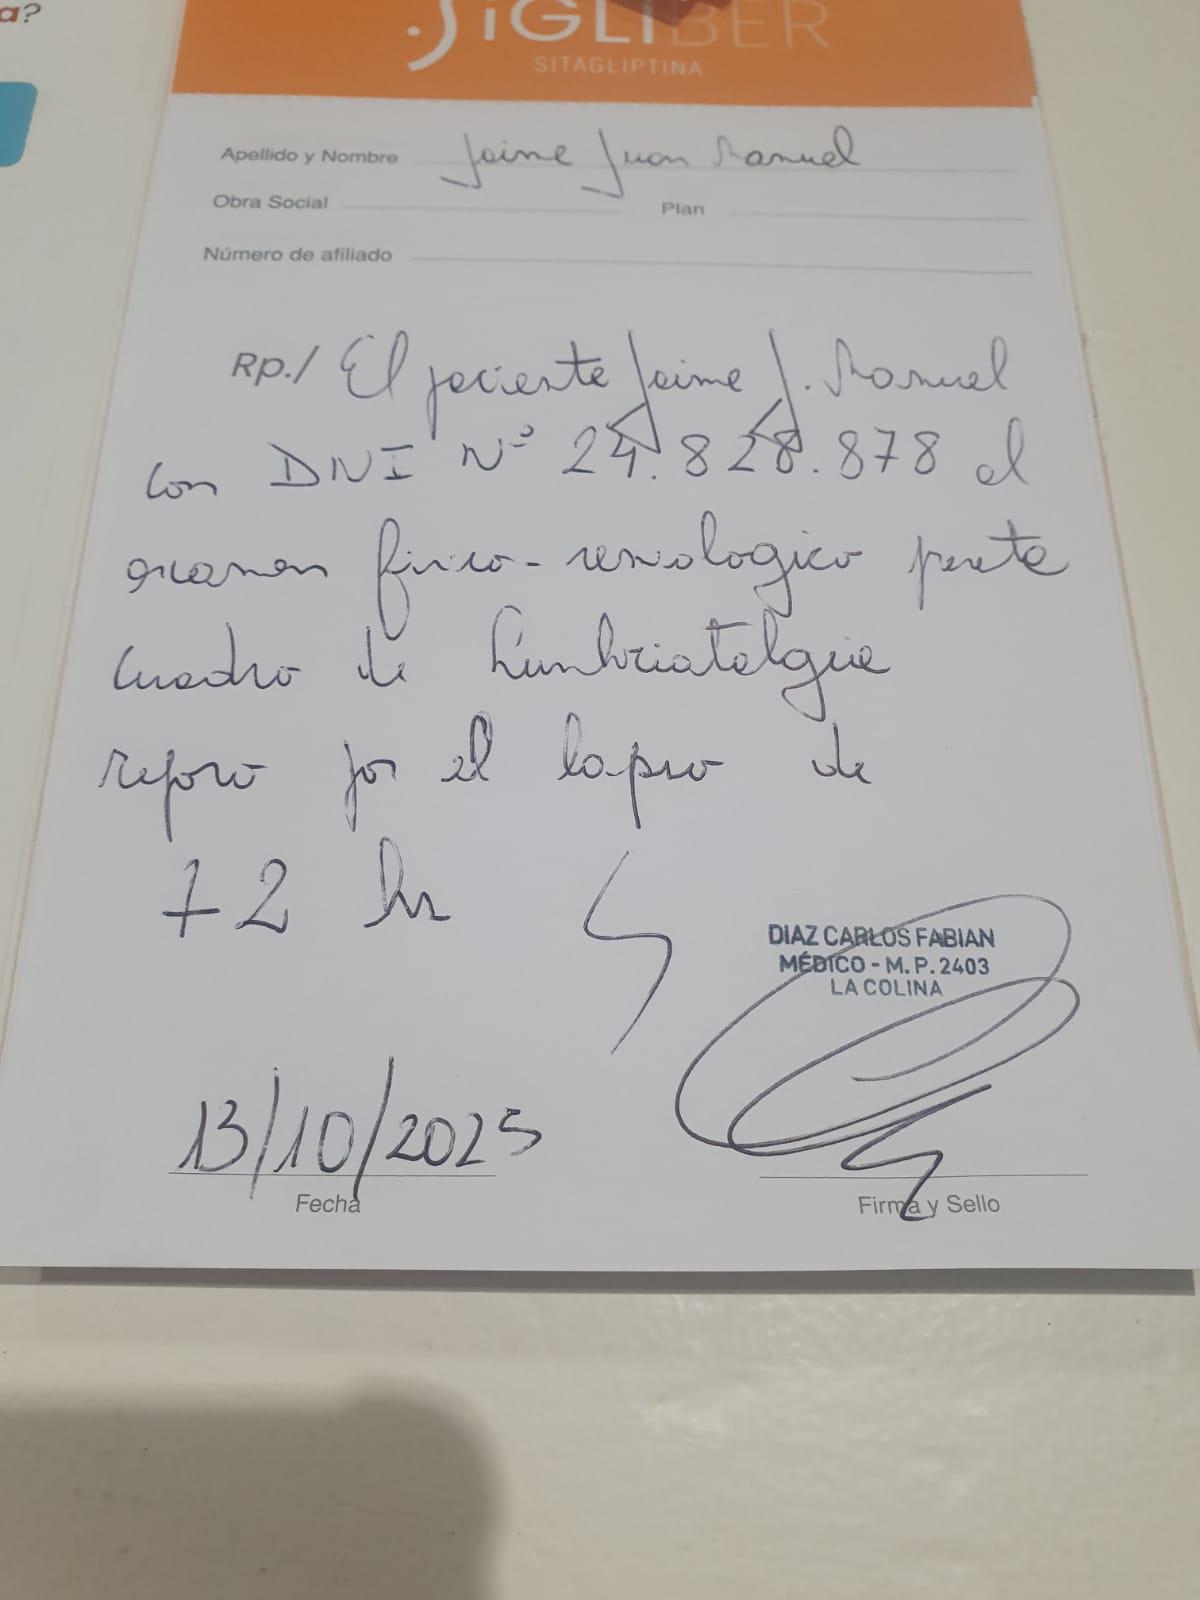 a?
SiGLIBER
SITAGLIPTINA
Apellido y Nombre Jaime Juan Manuel
Obra Social Plan
Número de afiliado
Rp./ El paciente Jaime J. Manuel
con DNI Nº 24.828.878 al
examen fisico-semologico pexta
cuadro de Lumbociatalgia
reposo por el lapso de
72 hr
DIAZ CARLOS FABIAN
MÉDICO - M. P. 2403
LA COLINA
13/10/2025
Fecha Firma y Sello